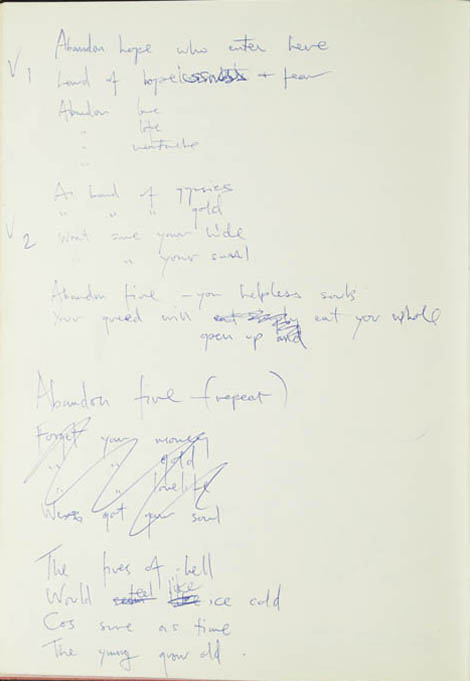 V1 Abandon hope who enter here
Land of hopelessness + fear
Abandon love
" life
"
"
V2 A band of gypsies
" " " gold
Wont save your hide
" " your soul
Abandon five – you helpless souls
Your greed will eat you whole
open up and
Abandon five – (repeat)
Forget your money
" " gold
" " lovelife
Weves got your soul
The fires of hell
Would feel like ice cold
Cos sure as time
The young grow old.